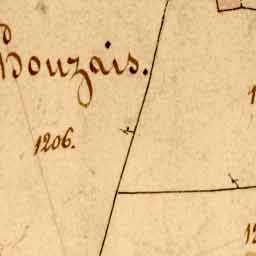 Bouzais.
1206.